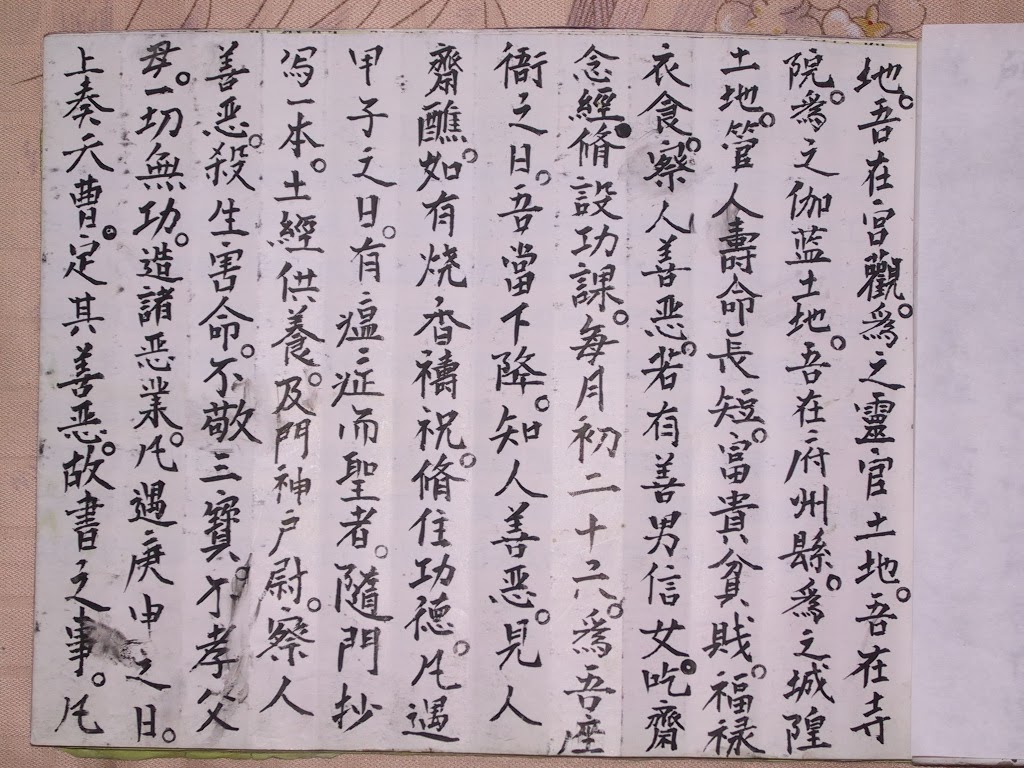 地。吾在宫觀。爲之靈官土地。吾在寺
院。爲之伽蓝土地。吾在府州縣。爲之城隍
土地。管人壽命長短。富貴貧賎。福禄
衣食。察人善恶。若有善男信女吃齋
念經。脩設功課。每月初二十六。爲吾座
衙之日。吾當下降。知人善恶。見人
齋醮。如有烧香禱祝。脩住功德。凡遇
甲子之日。有瘟症而聖者。隨門抄
写一本。土經供養。及門神户尉。察人
善恶。殺生害命。不敬三寳。不孝父
母。一切無功。造諸恶業。凡遇庚申之日。
上奏天曹。定其善恶。故書之事。凡